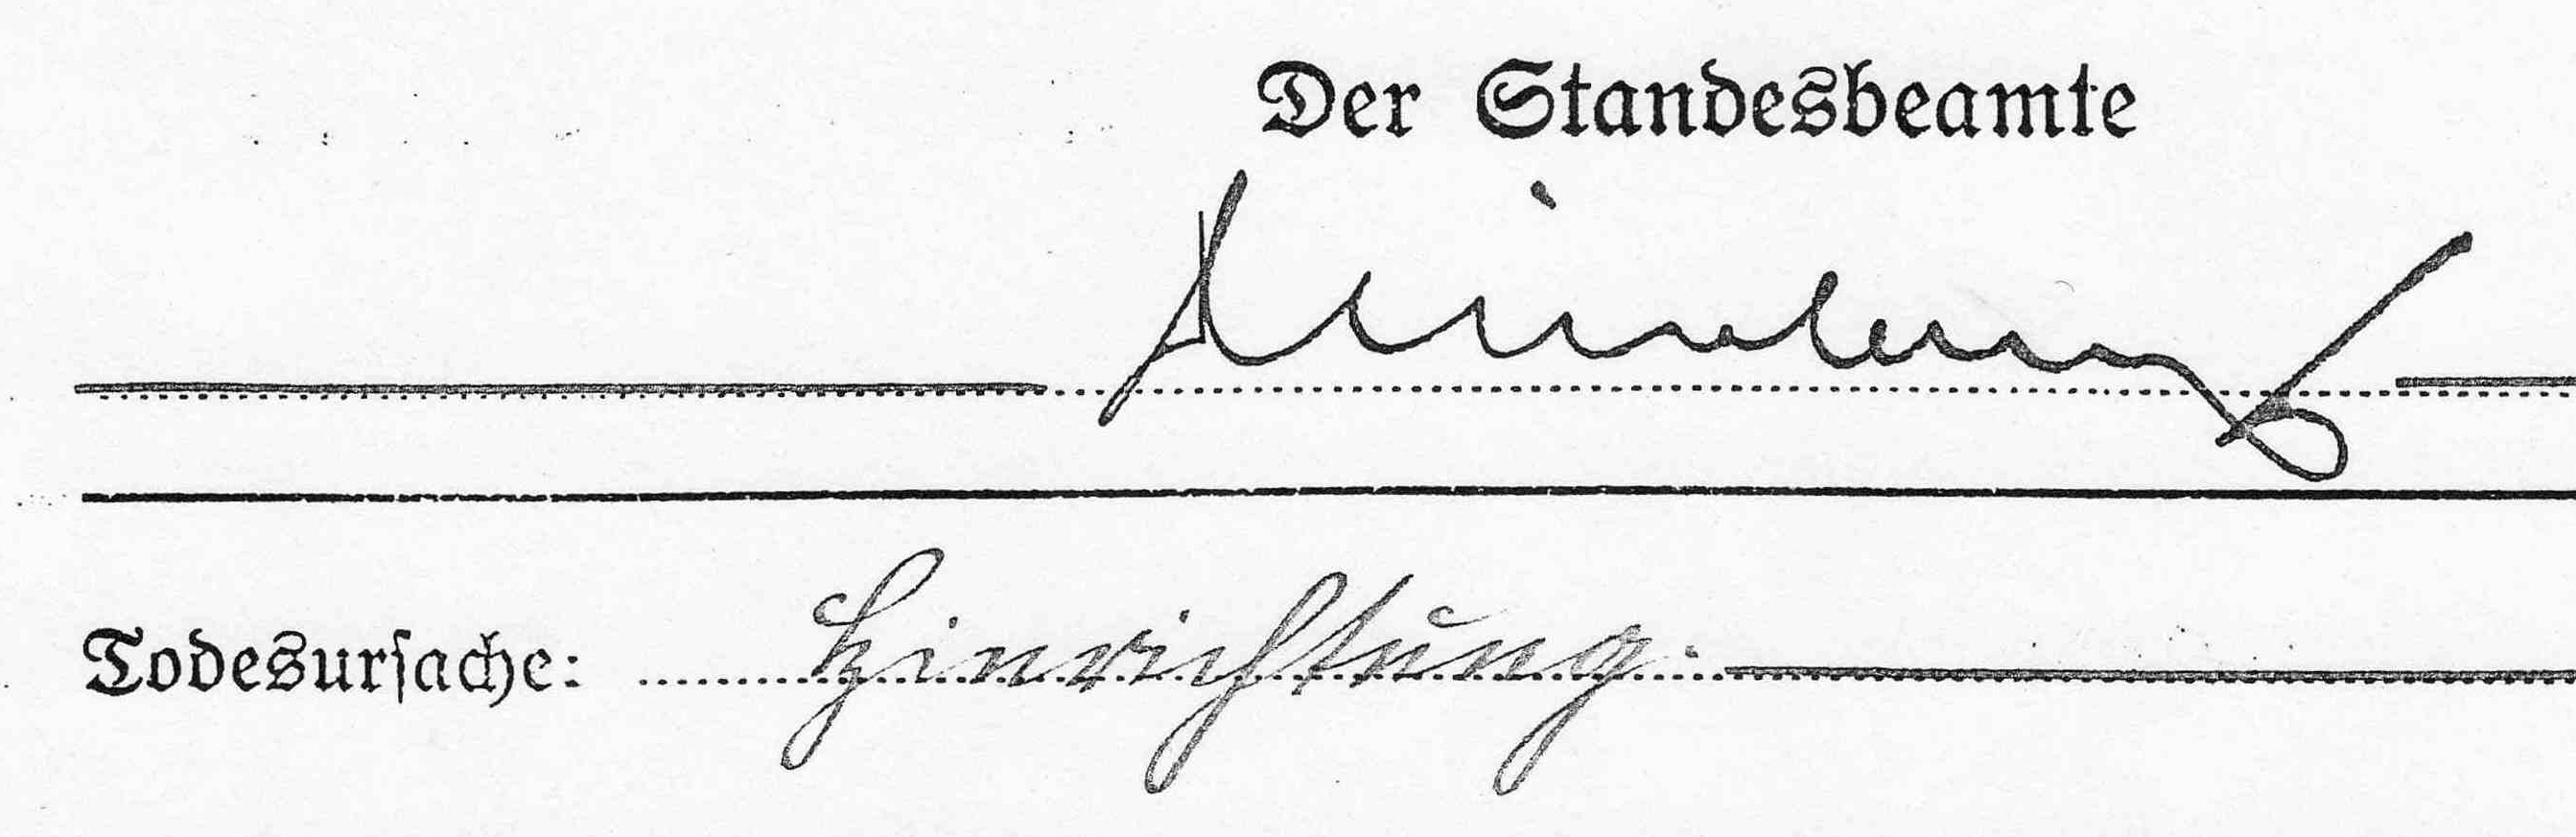 Der Standesbeamte
Todesursache: Hinrichtung.